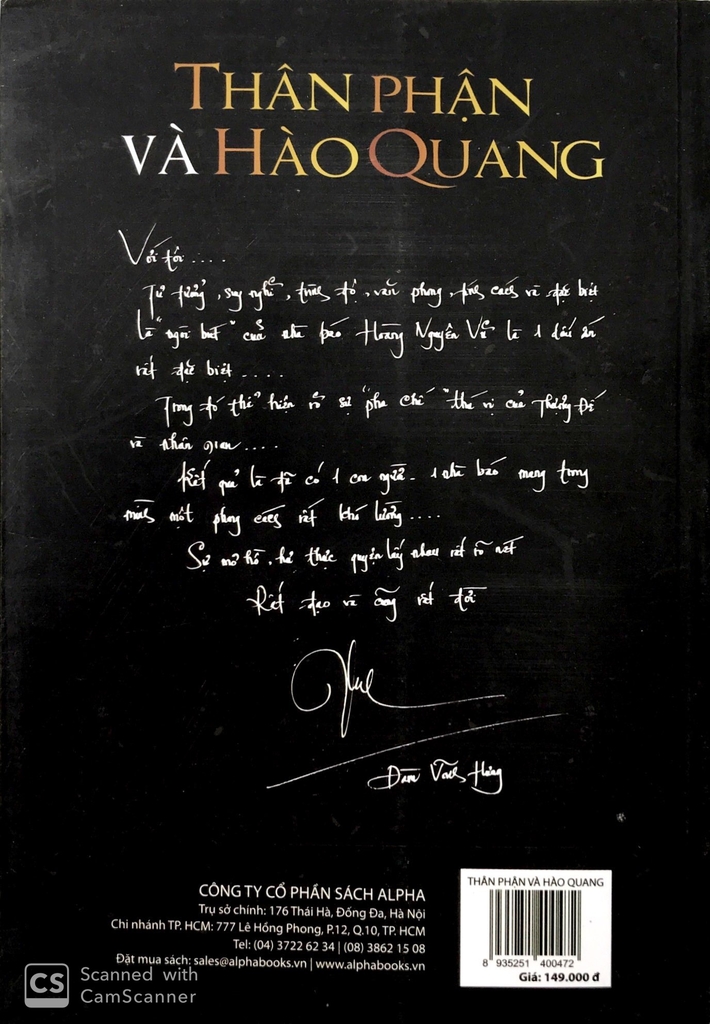 THÂN PHẬN
VÀ HÀO QUANG
Với tôi ....
Tư tưởng, suy nghĩ, trình độ, văn phong, tính cách và đặc biệt
là "ngòi bút" của nhà báo Hoàng Nguyên Vũ là 1 dấu ấn
rất đặc biệt ....
Trong đó thể hiện rõ sự "pha chế" thú vị của Thượng Đế
và nhân gian ....
Kết quả là đã có 1 con người - 1 nhà báo mang trong
mình một phong cách rất khó lường ....
Sự mơ hồ, hư thực quyện lấy nhau rất rõ nét
Rất đạo và cũng rất đời
Đàm Vĩnh Hưng
CÔNG TY CỔ PHẦN SÁCH ALPHA
Trụ sở chính: 176 Thái Hà, Đống Đa, Hà Nội
Chi nhánh TP. HCM: 777 Lê Hồng Phong, P.12, Q.10, TP. HCM
Tel: (04) 3722 62 34 | (08) 3862 15 08
Đặt mua sách: sales@alphabooks.vn | www.alphabooks.vn
THÂN PHẬN VÀ HÀO QUANG
8 935251 400472
Giá: 149.000 đ
CS Scanned with
CamScanner